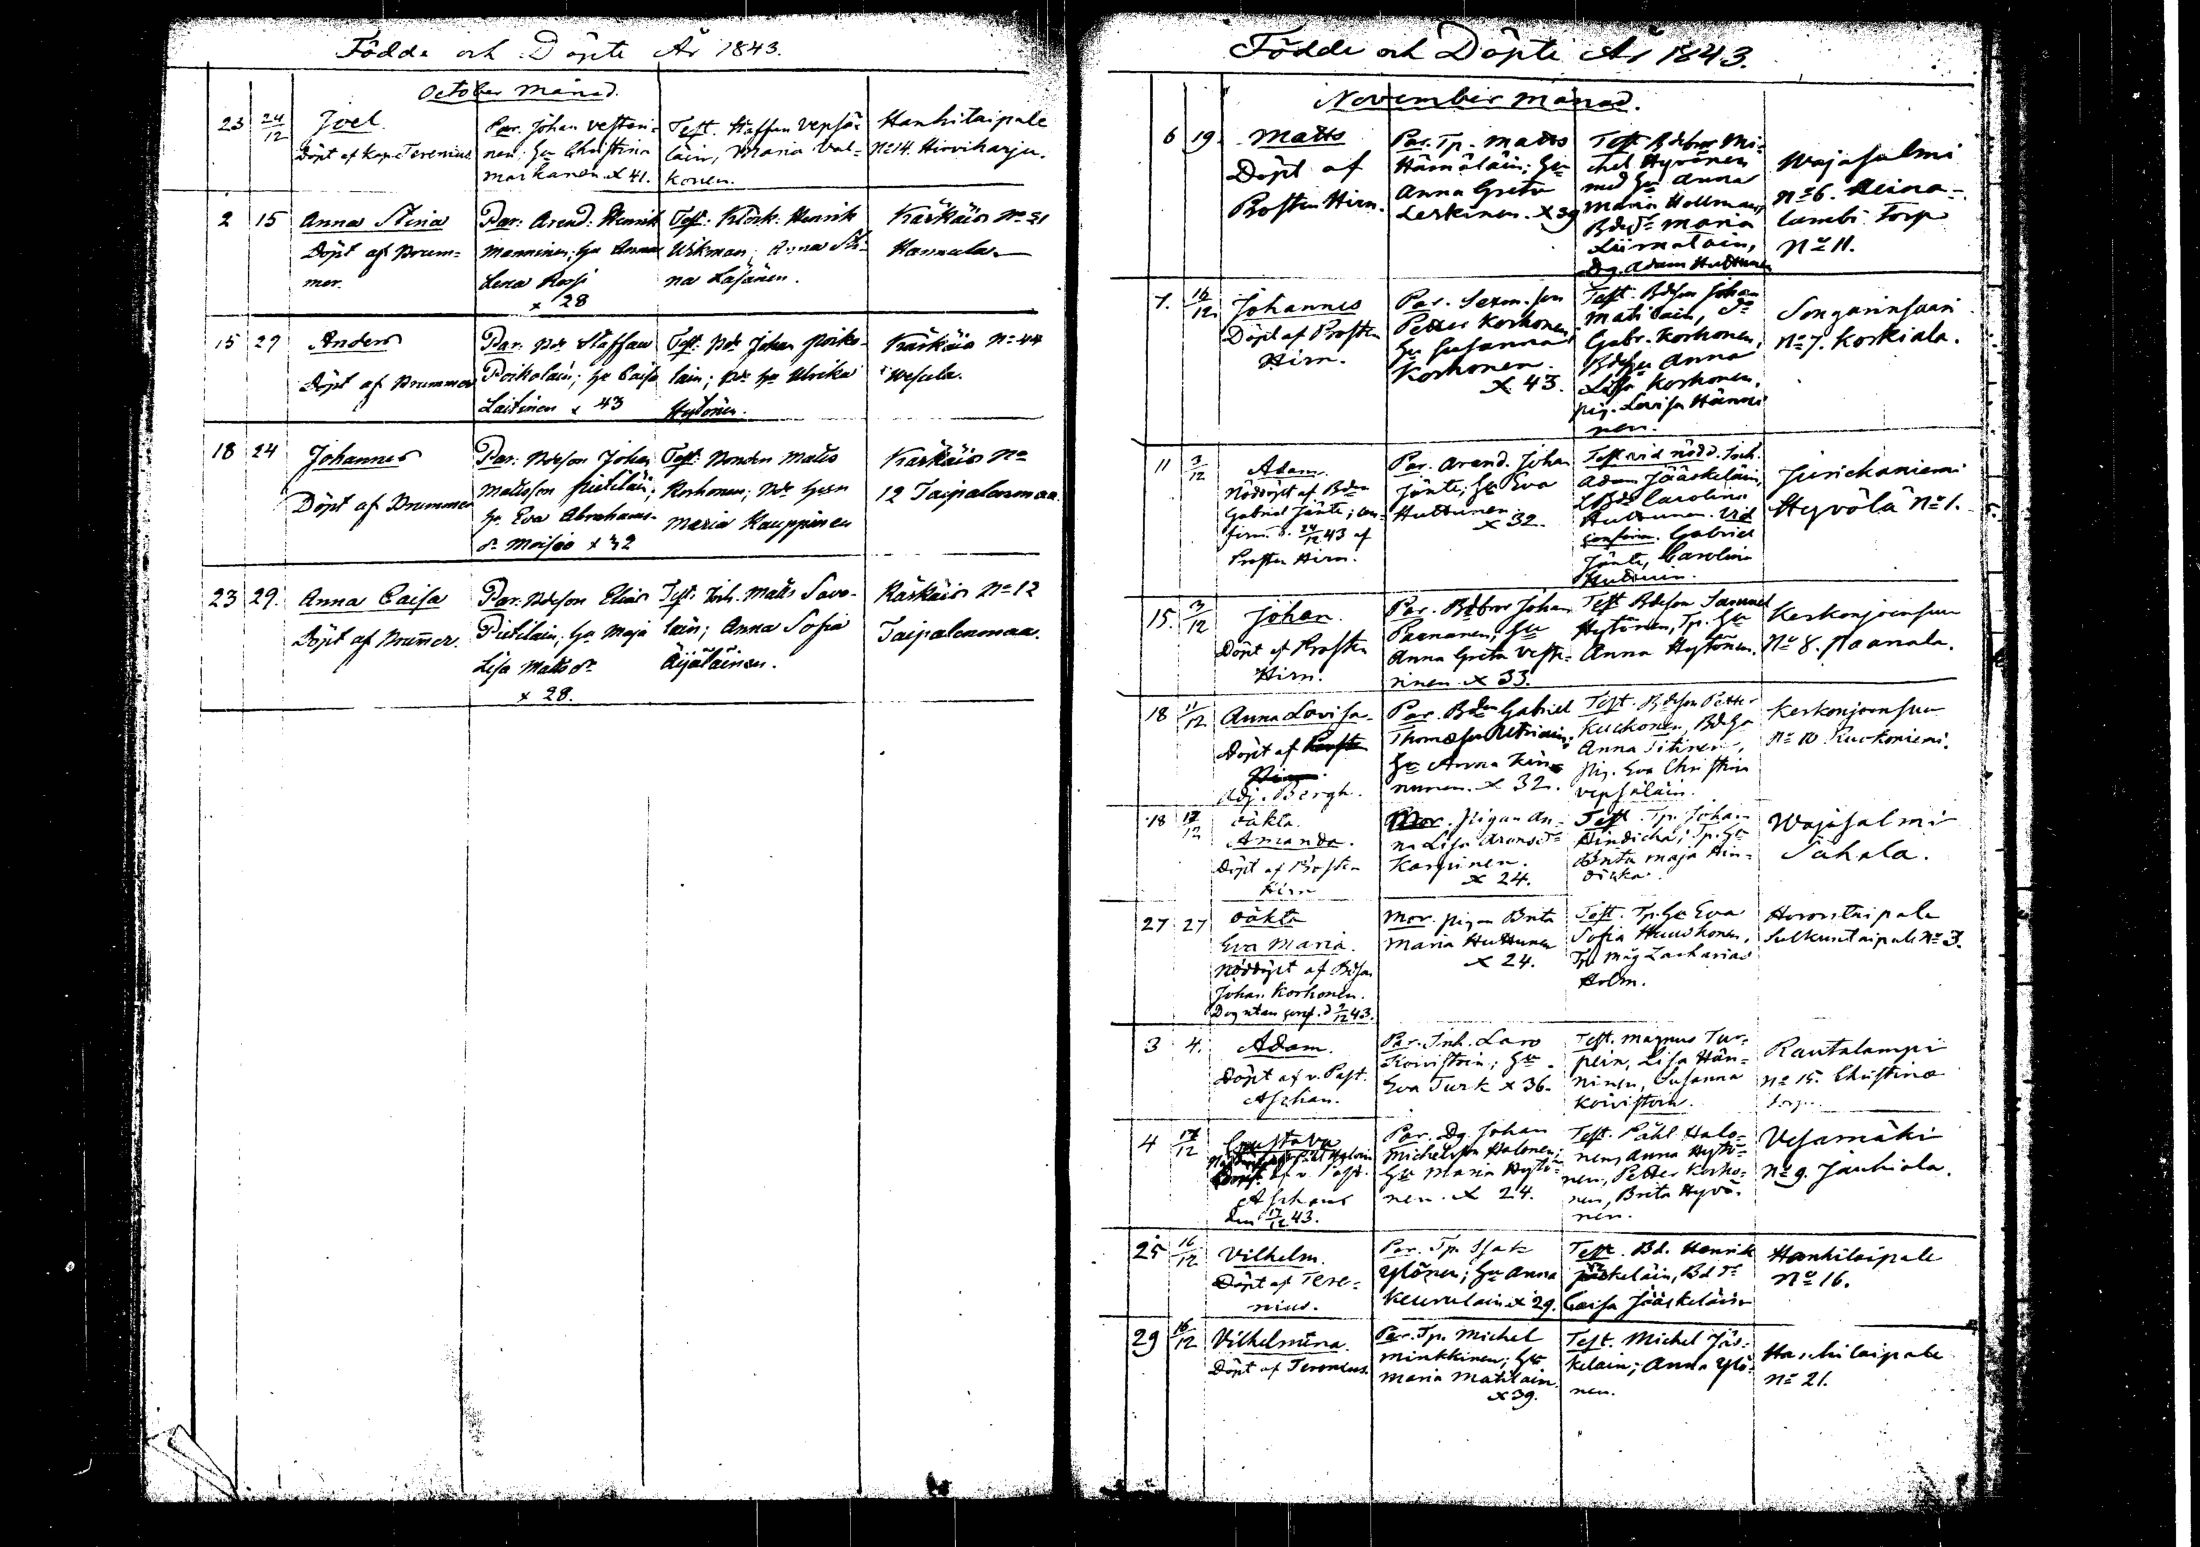 Födda och Döpte År 1843.
October månad.
23 24/12 Joel
Döpt af Kap. Terenius.
Par. Johan Vesteri-
nen. Hu Christina
Markanen x 41.
Test. Staffan Vepsä-
läin, Maria Val-
konen.
Hankitaipale
No 14. Hirviharju.
2 15 Anna Stina
Döpt af Brum-
mer.
Par: Arend. Henrik
Manninen; Hu Anna
Lena Rossi
x 28
Test. Henrik
Wikman; Anna Sti-
na
Kärkäis No 31
Hannula
15 29 Anders
Döpt af Brummer
Par. Staffan
Poikolain; Hu Caisa
Laitinen x 43
Test: Johan Poiko-
lain; Hu Ulrika
Hytönen.
Kärkäis No 44
Wesala.
18 24 Johannes
Döpt af Brummer
Par: Bdeson Johan
Matsson Pietiläin;
Hu Eva Abrahams-
dr x 32
Test: Bonden Mats
Korhonen;
Maria Kauppinen
Kärkäis No
12 Taipalenmaa.
23 29. Anna Caisa
Döpt af Brummer.
Par: Bdeson Elias
Pietilain, Hu Maja
Lisa Mats dr
x 28.
Test. Inh. Mats Savo-
lain; Anna Sofia
Äijäläinen.
Kärkäis No 12
Taipalenmaa.
Födde och Döpte År 1843.
November månad.
6 19. Matts
Döpt af
Prosten Hirn.
Par. Tp. Matts
Hämäläin; Hu
Anna Greta
Leskinen. x 39
Test. Bdebror Mi-
chel Hyvönen
med Hu Anna
Maria Hollman,
Bdedr Maria
Liimatain,
Dg. Adam Huttunen
Wajasalmi
No 6.
lambi Torp
No 11.
7. 16/12 Johannes
Döpt af Prosten
Hirn.
Par. Sexm. son
Petter Korhonen;
Hu Susanna
Korhonen.
x 43.
Test. Bdeson Johan
Matilain, do
Gabr. Korhonen,
Bdehu Anna
Lisa Korhonen,
pig. Lovisa Hänni-
nen.
Songarinsaari
No 7. Koskiala.
11 3/12 Adam.
Nöddöpt af Bden
Gabriel Jänte; con-
firm. d. 24/12 43 af
Prosten Hirn.
Par. Arend. Johan
Jänte; Hu Eva
Huttunen
x 32.
Test. vid nödd. Inh.
Adam Jääskeläin,
Carolina
Huttunen. Vid
confirm. Gabriel
Jänte, Carolina
Huttunen.
Jurickaniemi
Hyvölä No 1.
15. 3/12 Johan.
Döpt af Prosten
Hirn.
Par. Bdebror Johan
Paananen; Hu
Anna Greta Veste-
rinen x 33.
Test. Bdeson Samuel
Hytönen, Tp. Hu
Anna Hytönen.
Keskonjoensuu
No 8. Paanala.
18 11/12 Anna Lovisa.
Döpt af
Adj. Bergh.
Par. Bden Gabriel
Thomasson
Hu Anna Kin-
nunen. x 32.
Test. Bdeson Petter
Kuckonen, BdeHu
Anna Titinen,
Pig. Eva Christina
Vepsäläin.
Keskonjoensuu
No 10 Ruokoniemi.
18 17/12 oäkta
Amanda.
Döpt af Prosten
Hirn
Mor. Pigan An-
na Lisa Aronsdr
Karpinen.
x 24.
Test. Tp. Johan
Hindicka; Tp. Hu
Brita Maja Hin-
dicka.
Wajasalmi
Sahala.
27 27 oäkta
Eva Maria.
Nöddöpt af Bdson
Johan Korhonen.
Mor. pigan Brita
Maria Huttunen
x 24.
Test. Tp. Hu Eva
Sofia Huuskonen,
Tp. måg Zacharias
Holm.
Horontaipale
Sulkuntaipale No 3.
3 4. Adam.
Döpt af v. Past.
Aschan.
Par. Inh. Lars
Koivistoin; Hu
Eva Turk x 36.
Test. Magnus Tur-
pein, Lisa Hän-
ninen, Susanna
Koivistoin.
Rautalampi
No 15. Christina
torp.
4 17/12 Gustava
af v. Past.
Aschan
den 17/12 43.
Par. Dg. Johan
Michelsson Halonen;
Hu Maria Hytö-
nen. x 24.
Test. Påhl Halo-
nen, Anna Hytö-
nen, Petter Korho-
nen, Brita Hyvö-
nen.
Vesamäki
No 9. Jauhiala.
25 16/12 Vilhelm.
Döpt af Tere-
nius.
Par. Tp. Isak
Ylönen; Hu Anna
Keurulain x 29.
Test. Bd. Henrik
Jääskeläin, Bd dr
Caisa Jääskeläin
Hankitaipale
No 16.
29 16/12 Vilhelmina.
Döpt af Terenius.
Par. Tp. Michel
Minkkinen; Hu
Maria Matilain.
x 39.
Test. Michel Jäs-
kelain; Anna Ylö-
nen.
Hankitaipale
No 21.